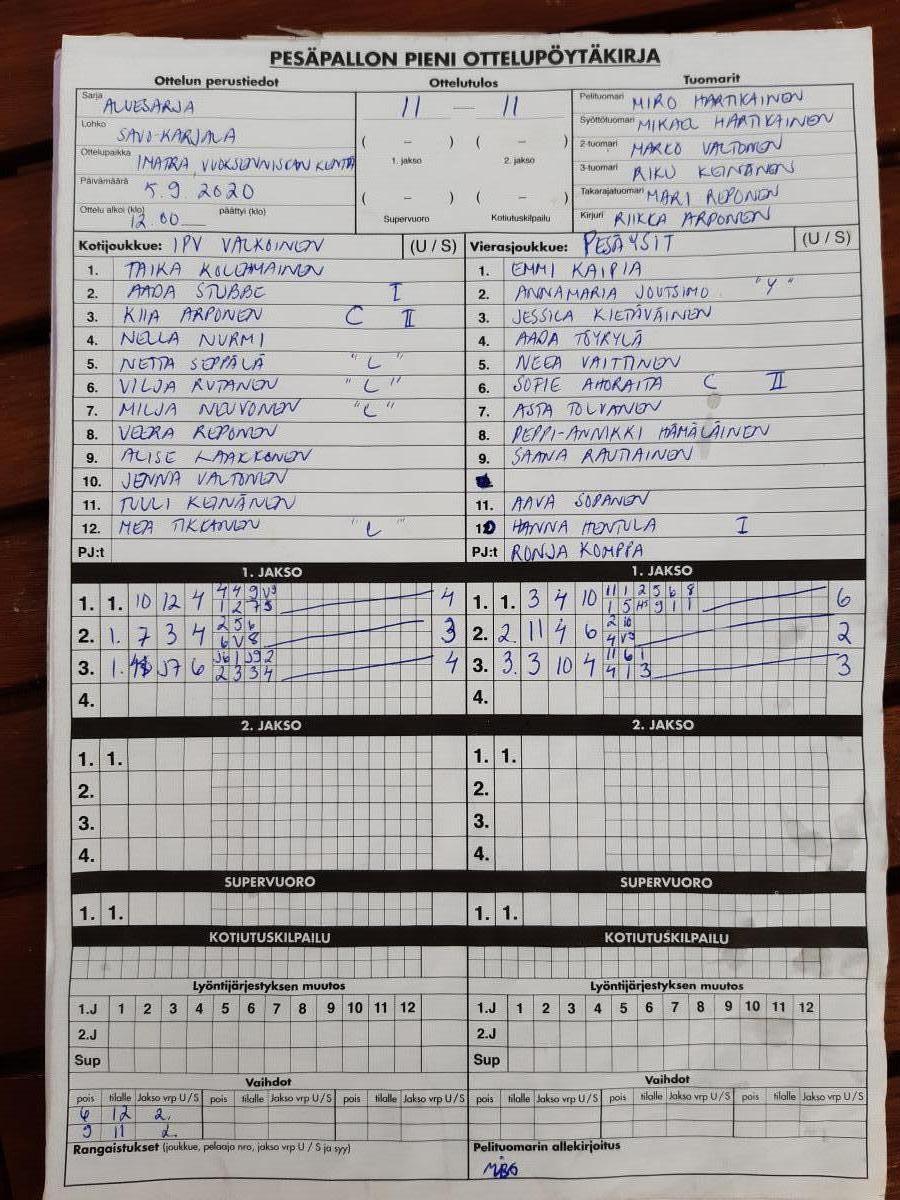 PESÄPALLON PIENI OTTELUPÖYTÄKIRJA
Ottelun perustiedot
Sarja ALUESARJA
Lohko SAVO-KARJALA
Ottelupaikka IMATRA, VUOKSENNISKAN KENTTÄ
Päivämäärä 5.9.2020
Ottelu alkoi (klo) 12.00 päättyi (klo)
Ottelutulos
11 — 11
( – ) ( – )
1. jakso 2. jakso
( – ) ( – )
Supervuoro Kotiutuskilpailu
Tuomarit
Pelituomari MIRO HARTIKAINEN
Syöttötuomari MIKAEL HARTIKAINEN
2-tuomari MARKO VALTONEN
3-tuomari RIKU KEINÄNEN
Takarajatuomari MARI REPONEN
Kirjuri RIIKKA ARPONEN
Kotijoukkue: IPV VALKOINEN (U / S)
1. TAIKA KOLEHMAINEN
2. AADA STUBBE I
3. KIIA ARPONEN C II
4. NELLA NURMI
5. NETTA SEPPÄLÄ "L"
6. VILJA RUTANEN "L"
7. MILJA NEUVONEN "L"
8. VEERA REPONEN
9. ALISE LAAKKONEN
10. JENNA VALTONEN
11. TUULI KEINÄNEN
12. MEA TIKKANEN "L"
PJ:t
Vierasjoukkue: PESÄYSIT (U / S)
1. EMMI KAIPIA
2. ANNAMARIA JOUTSIMO "Y"
3. JESSICA KIETÄVÄINEN
4. AADA TÖYRYLÄ
5. NEEA VAITTINEN
6. SOFIE AHORAITA C II
7. ASTA TOLVANEN
8. PEPPI-ANNIKKI HÄMÄLÄINEN
9. SAANA RAUTIAINEN
11. AAVA SOPANEN
10 HANNA HENTULA I
PJ:t RONJA KOMPPA
1. JAKSO
1. 1. 10 12 4 4 4 9 V9 4
1 2 7 5
2. 1. 7 3 4 2 5 6 3
6 V 8
3. 1. J7 6 J6 1 J9 2 4
2 3 3 4
4.
1. JAKSO
1. 1. 3 4 10 11 1 2 5 6 8 6
1 5 9 1 1
2. 2. 11 4 6 2 10 2
4 V9
3. 3. 3 10 4 11 6 1 3
4 1 3
4.
2. JAKSO
1. 1.
2.
3.
4.
2. JAKSO
1. 1.
2.
3.
4.
SUPERVUORO
1. 1.
SUPERVUORO
1. 1.
KOTIUTUSKILPAILU
KOTIUTUSKILPAILU
Lyöntijärjestyksen muutos
1.J 1 2 3 4 5 6 7 8 9 10 11 12
2.J
Sup
Lyöntijärjestyksen muutos
1.J 1 2 3 4 5 6 7 8 9 10 11 12
2.J
Sup
Vaihdot
pois tilalle Jakso vrp U / S pois tilalle Jakso vrp U / S pois tilalle Jakso vrp U / S
6 12 2.
9 11 2.
Vaihdot
pois tilalle Jakso vrp U / S pois tilalle Jakso vrp U / S pois tilalle Jakso vrp U / S
Rangaistukset (joukkue, pelaaja nro, jakso vrp U / S ja syy)
Pelituomarin allekirjoitus